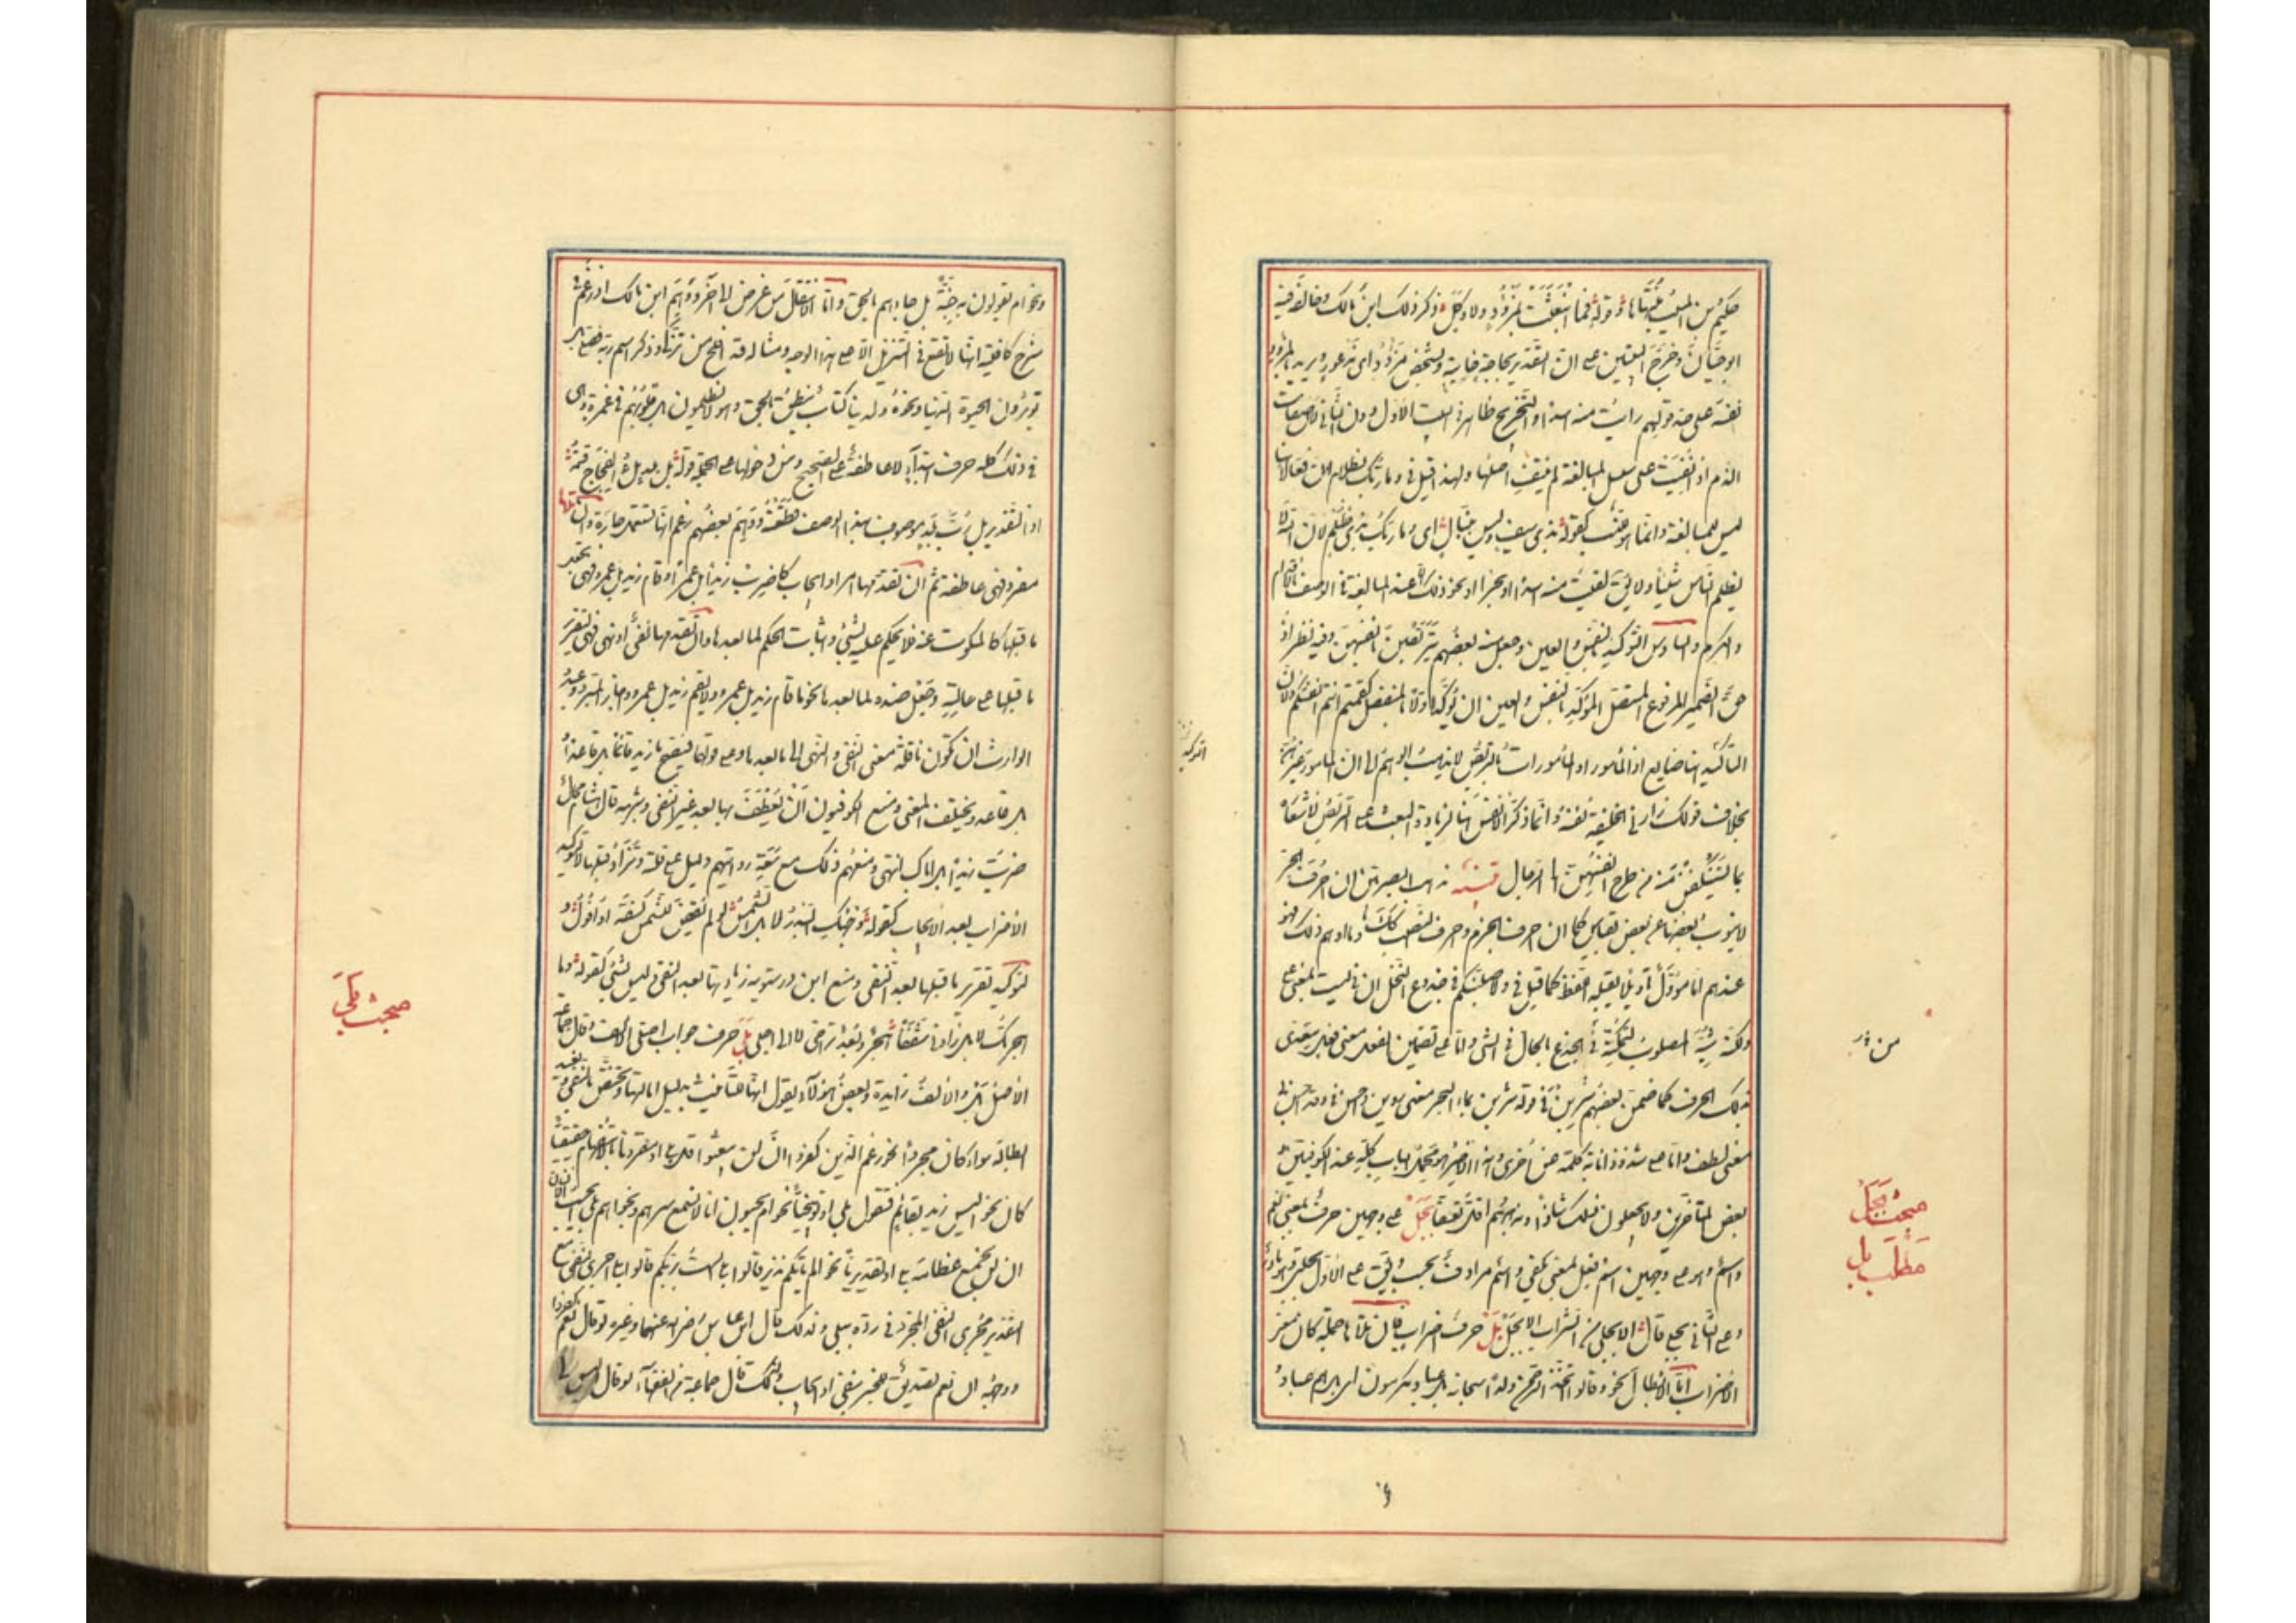 حكيم بن المسيب منتهاها وقوله فما انبعثت بمزؤد ولا وكل ذكر ذلك ابن مالك وخالفه
ابو حيان وخرج البيتين على ان التقدير بحاجة خايبة وبشخص مزؤد اى مذعور ويريد بالمزؤد
نفسه على حد قولهم رايت منه اسدا والتخريج ظاهر فى البيت الاول دون الثانى لان صفات
الذم اذا نفيت على سبيل المبالغة لم ينتف اصلها ولهذا قيل فى وما ربك بظلام ان فعالا
ليس للمبالغة وانما هو للنسب كقوله بذى سيف وليس بنبال اى وما ربك بذى ظلم لان الله لا
يظلم الناس شيئا ولا يق لقيت منه اسدا او بحرا او نحو ذلك الا عند المبالغة فى الوصف بالاقدام
والكرم والسادس التوكيد بالنفس والعين وجعل منه بعضهم يتربصن بانفسهن وفيه نظر اذ
حق الضمير المرفوع المتصل المؤكد بالنفس والعين ان يؤكد اولا بالمنفصل كقمتم انتم انفسكم ولان
التاكيد هنا ضايع اذ المامورات بالتربص لا يذهب الوهم الى ان المامور غيرهن
بخلاف قولك زارنى الخليفة نفسه وانما ذكر الانفس هنا لزيادة البعث على التربص لاشعاره
بما يستنكفن منه من طموح انفسهن الى الرجال تنبيه مذهب البصريين ان احرف الجر
لا ينوب بعضها عن بعض بقياس كما ان احرف الجزم واحرف النصب كذلك وما اوهم ذلك فهو
عندهم اما مؤول تاويلا يقبله اللفظ كما قيل فى ولاصلبنكم فى جذوع النخل ان فى ليست بمعنى على
ولكن شبه المصلوب لتمكنه فى الجذع بالحال فى الشئ واما على تضمين الفعل معنى فعل يتعدى
بذلك الحرف كما ضمن بعضهم شربن فى قوله شربن بماء البحر معنى روين واحسن فى وقد احسن بى
معنى لطف واما على شذوذ انابة كلمة عن اخرى وهذا الاخير هو محمل الباب كله عند الكوفيين و
بعض المتاخرين ولا يجعلون ذلك شاذا ومذهبهم اقل تعسفا بجل على وجهين حرف بمعنى نعم
واسم وهو على وجهين اسم فعل بمعنى يكفى واسم مرادف لحسب ويق على الاول بجلنى وهو نادر
وعلى الثانى بجلى قال الا بجلى من الشراب الا بجل بل حرف اضراب فان تلاها جملة كان معنى
الاضراب اما الابطال نحو وقالوا اتخذ الرحمن ولدا سبحانه بل عباد مكرمون اى بل هم عباد و
من در
مبحث بجل
مطلب بل
التوكيد
ونحو ام يقولون به جنة بل جاءهم بالحق واما الانتقال من غرض الى آخر ووهم ابن مالك اذ زعم فى
شرح كافيته انها لا تقع فى التنزيل الا على هذا الوجه ومثاله قد افلح من تزكى وذكر اسم ربه فصلى بل
تؤثرون الحيوة الدنيا ونحوه ولدينا كتاب ينطق بالحق وهم لا يظلمون بل قلوبهم فى غمرة وهى
فى ذلك كله حرف ابتداء لا عاطفة على الصحيح ومن دخولها على الجملة قوله بل بلد ملء الفجاج قتمه
اذ التقدير بل رب بلد موصوف بهذا الوصف قطعته ووهم بعضهم فزعم انها تستعمل جارة وان تلاها
مفرد فهى عاطفة ثم ان تقدمها امر او ايجاب كاضرب زيدا بل عمرا وقام زيد بل عمرو فهى تجعل
ما قبلها كالمسكوت عنه فلا يحكم عليه بشئ واثبات الحكم لما بعدها وان تقدمها نفى او نهى فهى لتقرير
ما قبلها على حالته وجعل ضده لما بعده نحو ما قام زيد بل عمرو ولا يقم زيد بل عمرو واجاز المبرد وعبد
الوارث ان تكون ناقلة معنى النفى والنهى الى ما بعدها وعلى قولهما فيصح ما زيد قائما بل قاعدا و
بل قاعد ويختلف المعنى ومنع الكوفيون ان يعطف بها بعد غير النفى وشبهه قال هشام محال
ضربت زيدا بل اياك انتهى ومنعهم ذلك مع سعة روايتهم دليل على قلته وتزاد قبلها لا لتوكيد
الاضراب بعد الايجاب كقوله وجهك البدر لا بل الشمس لو لم يقض للشمس كسفة او افول و
لتوكيد تقرير ما قبلها بعد النفى ومنع ابن درستويه زيادتها بعد النفى وليس بشئ كقوله وما
هجرتك لا بل زادنى شغفا هجر وبعد تراخى لا الى اجل بلى حرف جواب اصلى الالف وقال جماعة
الاصل بل والالف زايدة وبعض هؤلاء يقول انها للتانيث بدليل امالتها وتختص بالنفى وتفيد
ابطاله سواء كان مجردا نحو زعم الذين كفروا ان لن يبعثوا قل بلى او مقرونا بالاستفهام حقيقيا
كان نحو اليس زيد بقائم فتقول بلى او توبيخيا نحو ام يحسبون انا لا نسمع سرهم ونجواهم بلى ايحسب الانسان
ان لن نجمع عظامه بلى او تقديريا نحو الم ياتكم نذير قالوا بلى الست بربكم قالوا بلى اجرى النفى مع
التقدير مجرى النفى المجرد فى رده ببلى ولذلك قال ابن عباس رضى الله عنهما وغيره لو قال نعم كفروا
ووجهه ان نعم تصديق للخبر بنفى او ايجاب ولذلك قال جماعة من الفقهاء لو قال اليس لى
مبحث بلى